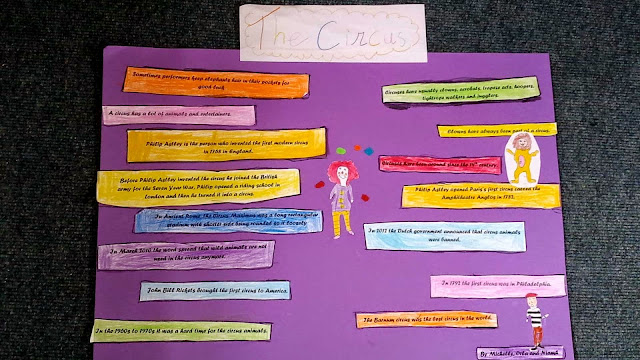 The Circus
Sometimes performers keep elephants hair in their pockets for
good luck
A circus has a lot of animals and entertainers.
Philip Astley is the person who invented the first modern circus
in 1768 in England.
Before Philip Astley invented the circus he joined the British
army for the Seven Year War. Philip opened a riding school in
London and then he turned it into a circus.
In Ancient Rome the Circus Maximus was a long rectangular
stadium with shorter side being rounded so it
In March the word spread that wild animals are not
used in the circus anymore.
John Bill Rickets brought the first circus to America.
In the 1960s to 1970s it was a hard time for the circus animals.
Circuses have usually clowns, acrobats, trapeze acts, hoopers,
tightrope walkers and jugglers.
Clowns have always been part of a circus.
Circuses have been around since the century
Philip Astley opened Paris's first circus called the
Amphitheatre Anglos in 1782.
In 2012 the Dutch government announced that circus animals
were banned.
In 1793 the first circus was in Philadelphia.
The Barnum circus was the best circus in the world.
By Michelle, Orla and Niamh